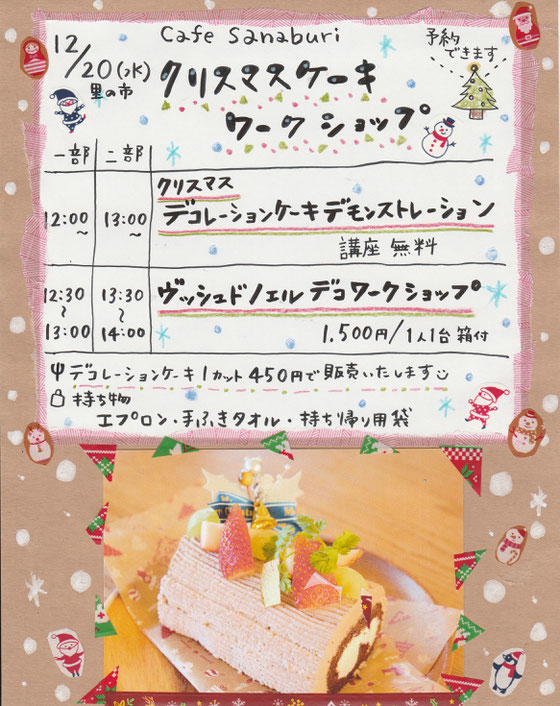 Cafe Sanaburi
12/20(水)
里の市
予約
できます
クリスマスケーキ
ワークショップ
一部 二部
クリスマス
12:00~ 13:00~ デコレーションケーキデモンストレーション
講座 無料
12:30~13:00 13:30~14:00 ヴッシュドノエル デコワークショップ
1.500円/1人1台 箱付
デコレーションケーキ1カット450円で販売いたします
持ち物
エプロン・手ふきタオル・持ち帰り用袋